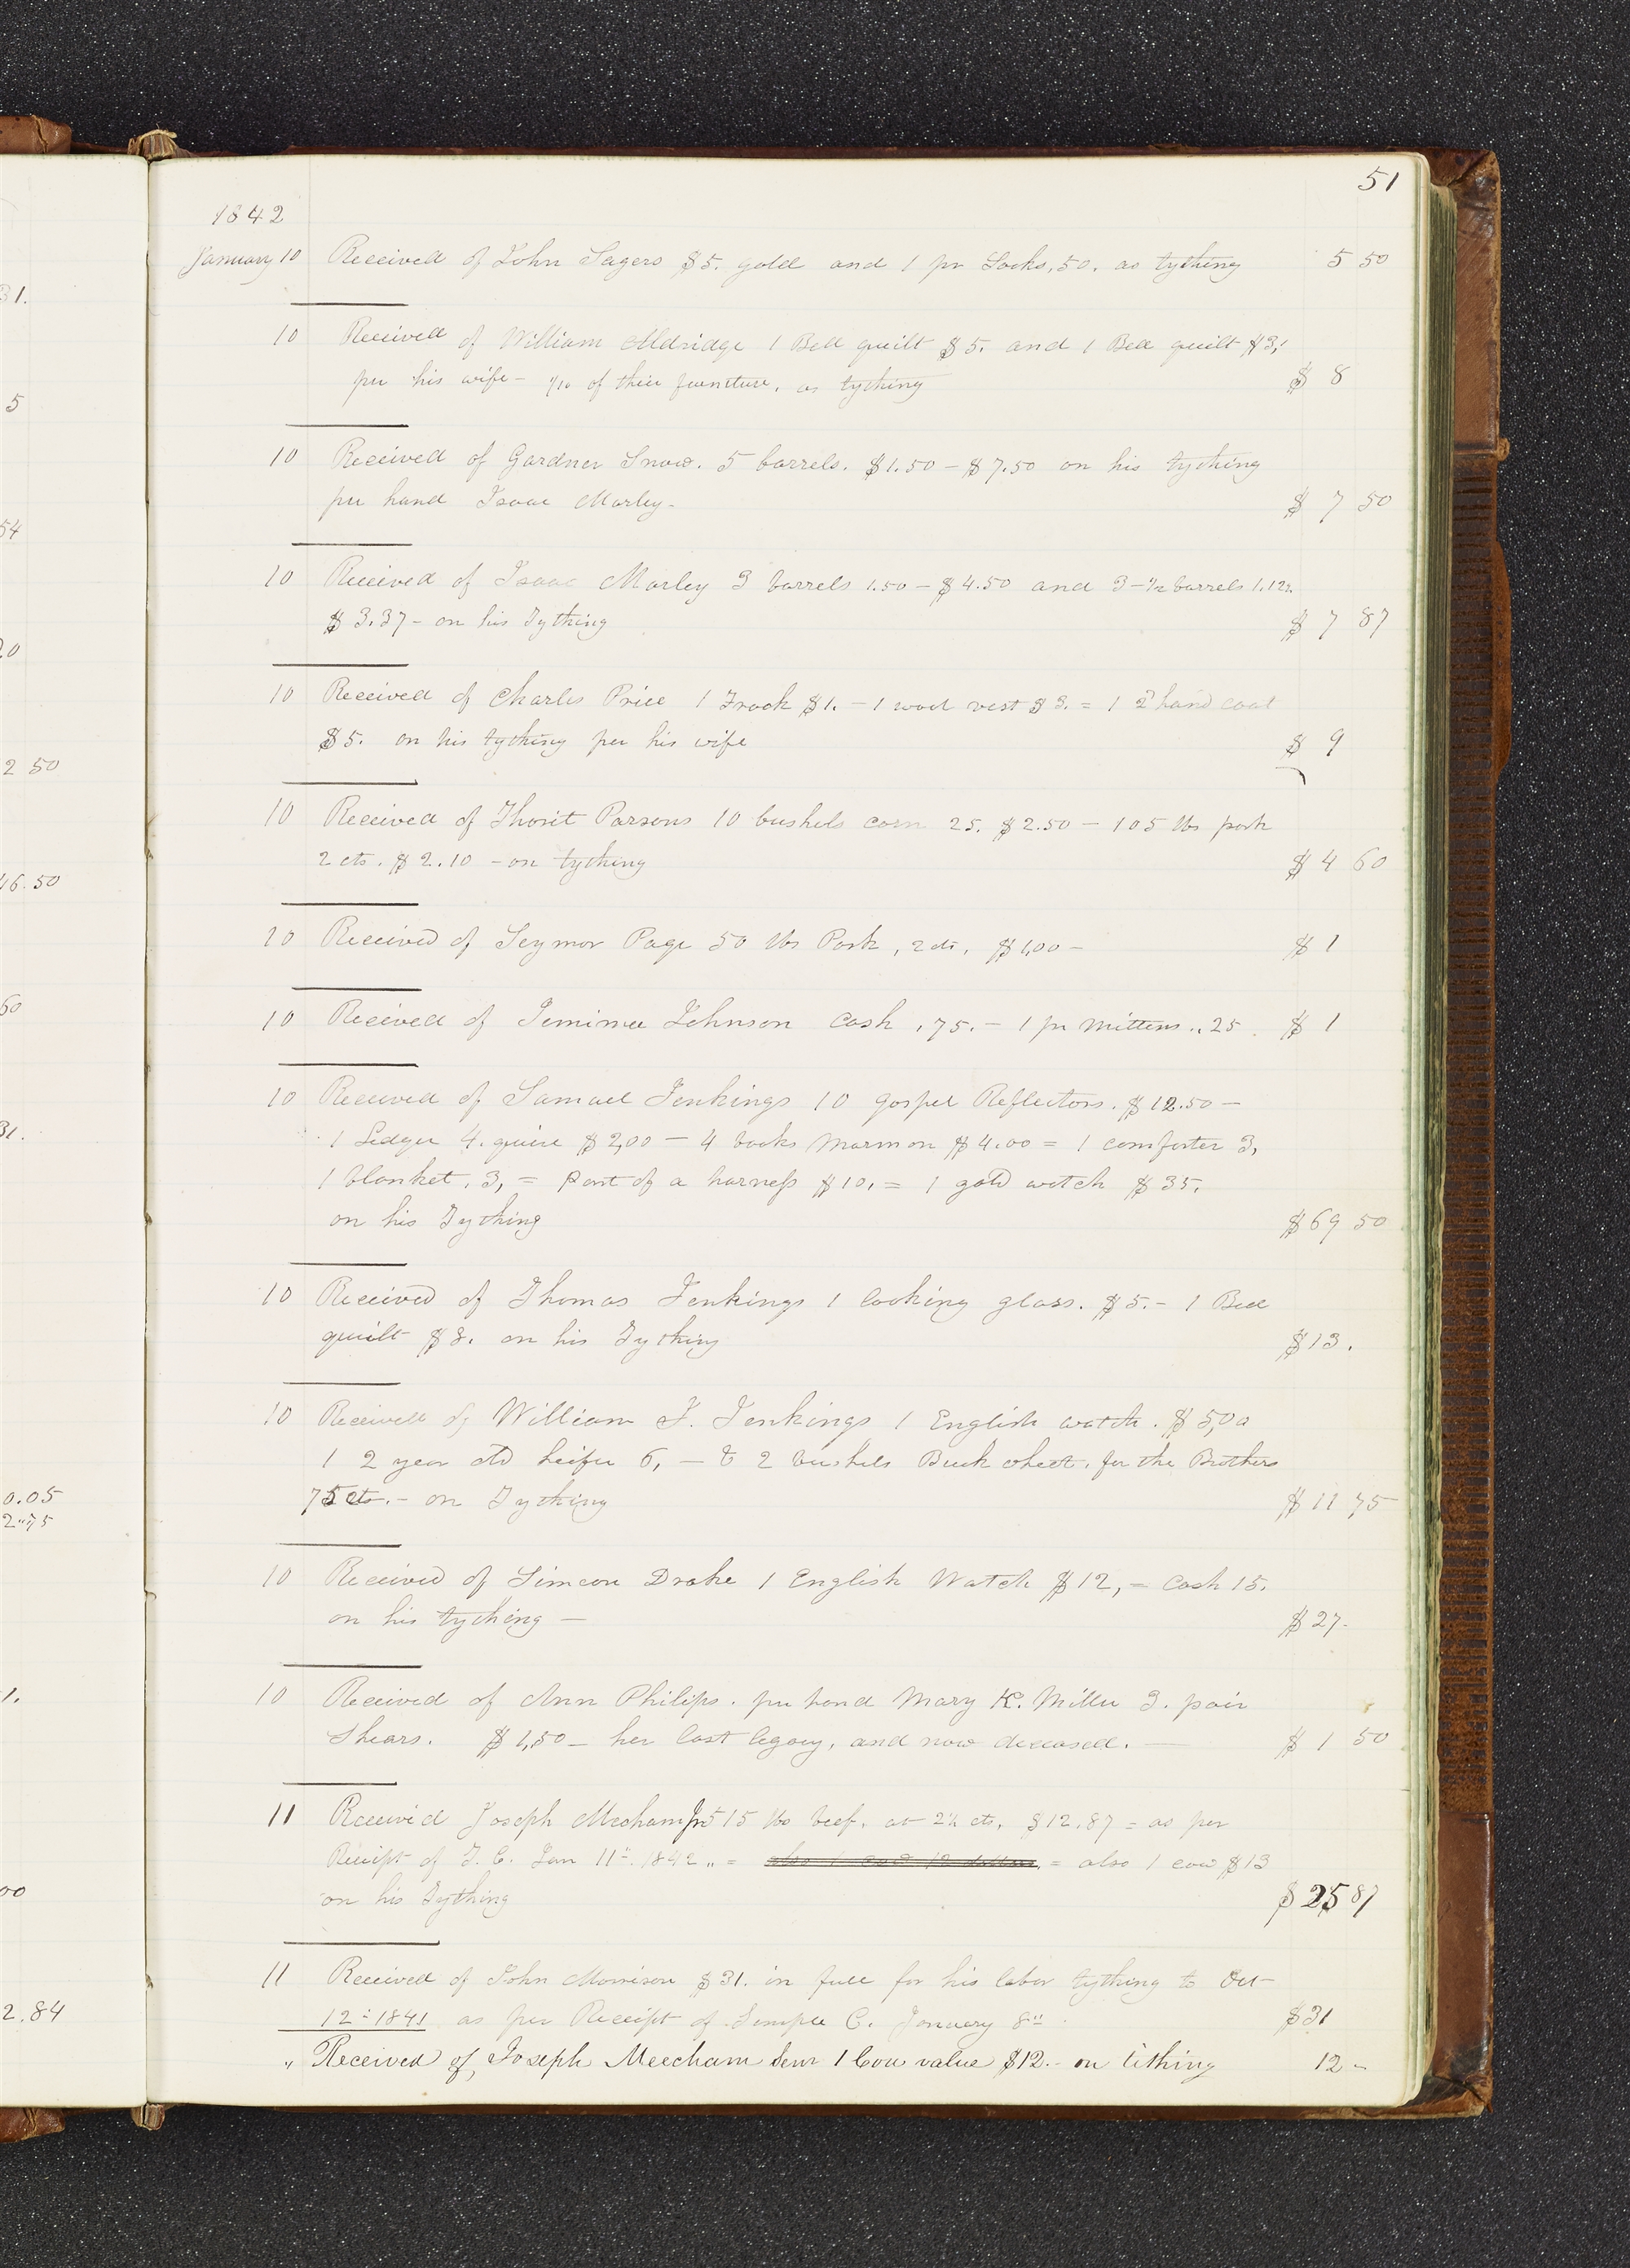 31.
5
54
20
2 50
46.50
50
31.
0.05
2"75
1.
00
2.84
51
1842
January 10 Received of John Sagers $5. gold and 1 pr Socks, 50. as tything 5 50
10 Received of William Aldridge 1 Bed quilt $5. and 1 Bed quilt $3,
per his wife - 1/10 of their furniture, as tything $ 8
10 Received of Gardner Snow. 5 barrels. $1.50 - $7.50 on his tything
per hand Isaac Morley - $ 7 50
10 Received of Isaac Morley 3 barrels 1.50 - $4.50 and 3 - 1/2 barrels 1.12 1/2
$3.37 - on his Tything $ 7 87
10 Received of Charles Price 1 Frock $1. - 1 wool vest $3. = 1 2d hand coat
$5. on his tything per his wife $ 9
10 Received of Thorit Parsons 10 bushels corn 25. $2.50 - 105 lbs pork
2 cts. $2.10 - on tything $ 4 60
10 Received of Seymor Page 50 lbs Pork, 2 cts, $1,00 - $ 1
10 Received of Jemima Johnson Cash ,75. - 1 pr Mittens .,25 $ 1
10 Received of Samuel Jenkings 10 Gospel Reflectors. $12.50 -
1 Ledger 4. quire $2,00 - 4 books Mormon $4.00 = 1 comforter 3,
1 blanket. 3, = Part of a harness $10, = 1 gold watch $35.
on his Tything $69 50
10 Received of Thomas Jenkings 1 looking glass. $5. - 1 Bed
quilt $8. on his Tything $13.
10 Received of William J. Jenkings 1 English watch. $5,00
1 2 year old heifer 6, - & 2 bushels Buck wheat, for the Brothers
75 cts. - on Tything $ 11 75
10 Received of Simeon Drake 1 English Watch $12, = Cash 15.
on his tything - $27.
10 Received of Ann Philips. per hand Mary K. Miller 3. pair
Shears. $1,50 - her last legacy, and now deceased. - $ 1 50
11 Received Joseph Mecham Jr 515 lbs beef, at 2 1/2 cts, $12.87 = as per
Receipt of T. C. Jan 11". 1842 " = also 1 cow 12 dollars, = also 1 cow $13
on his Tything $25 87
11 Received of John Morrison $31. in full for his labor tything to Oct
12" 1841 as per Receipt of Temple C. January 8" $31
" Received of, Joseph Meecham Senr 1 Cow value $12.- on tithing 12 -